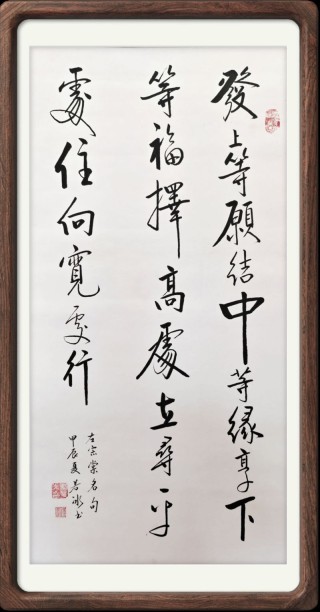 發上等願結中等緣享下
等福擇高處立尋平
處住向寬處行
左宗棠名句
甲辰夏若冰书